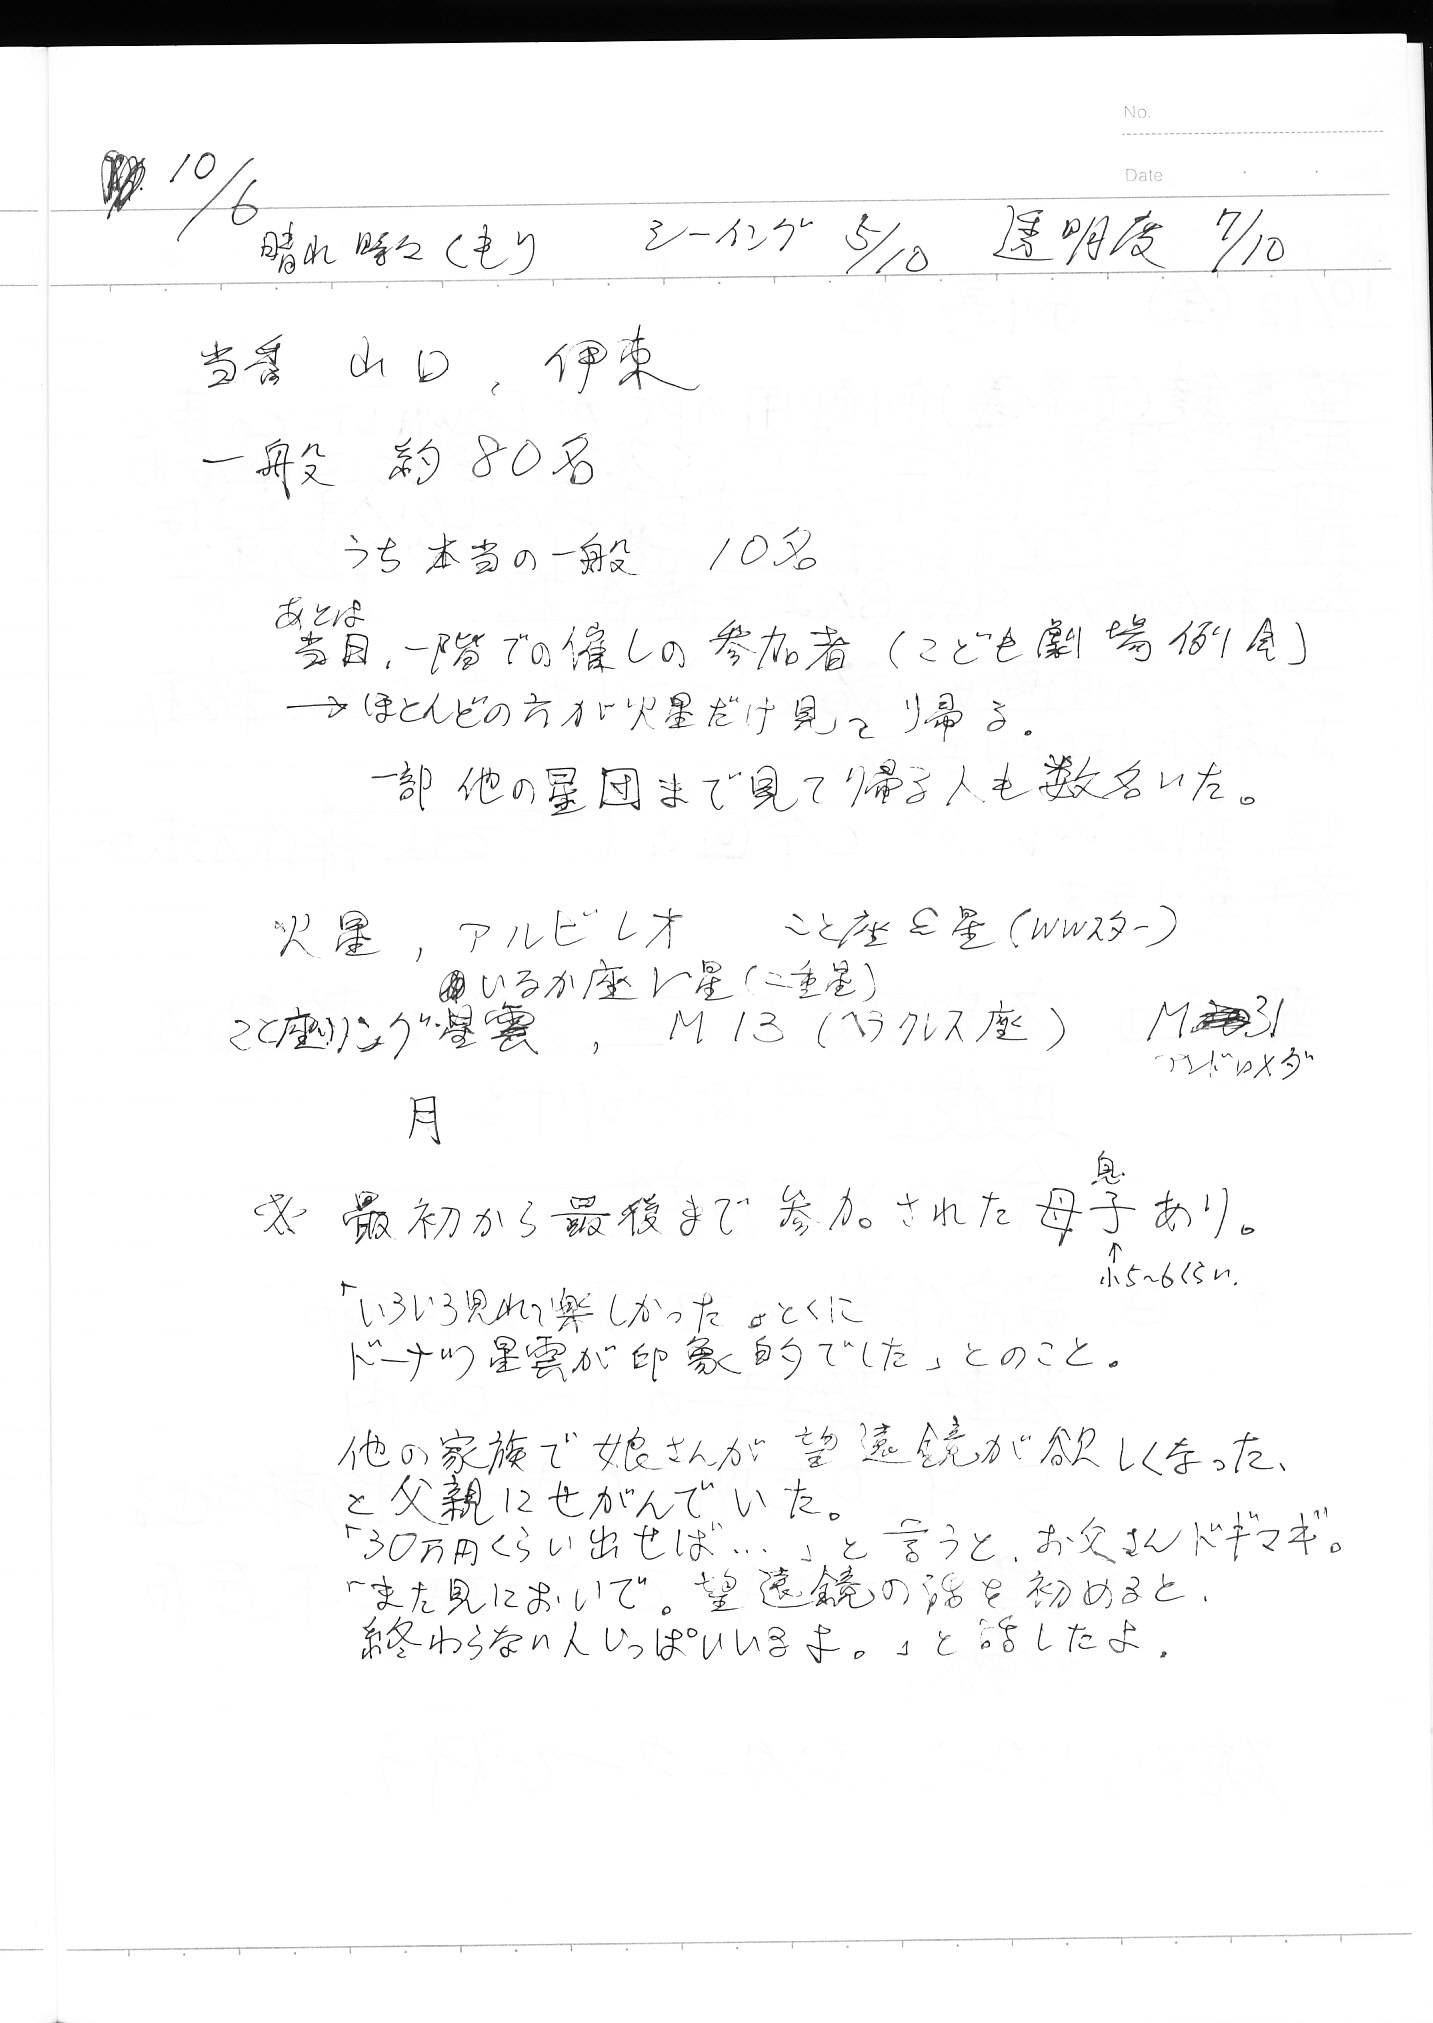 No.
Date
10/6
晴れ時々くもり シーイング 5/10 透明度 7/10
当番 山口、伊東
一般 約80名
うち本当の一般 10名
あとは
当日、一階での催しの参加者(こども劇場例会)
→ほとんどの方が火星だけ見て帰る。
一部他の星団まで見て帰る人も数名いた。
火星, アルビレオ こと座ε星(WWスター)
いるか座γ星(二重星)
こと座リング星雲, M13(ヘラクレス座) M31
アンドロメダ
月
息
※ 最初から最後まで参加。された母子あり。
↑
小5~6くらい.
「いろいろ見れて楽しかった。とくに
ドーナツ星雲が印象的でした」とのこと。
他の家族で娘さんが望遠鏡が欲しくなった、
と父親にせがんでいた。
「30万円くらい出せば…」と言うと、お父さんドギマギ。
「また見においで。望遠鏡の話を初めると、
終わらない人いっぱいいるよ。」と話したよ.